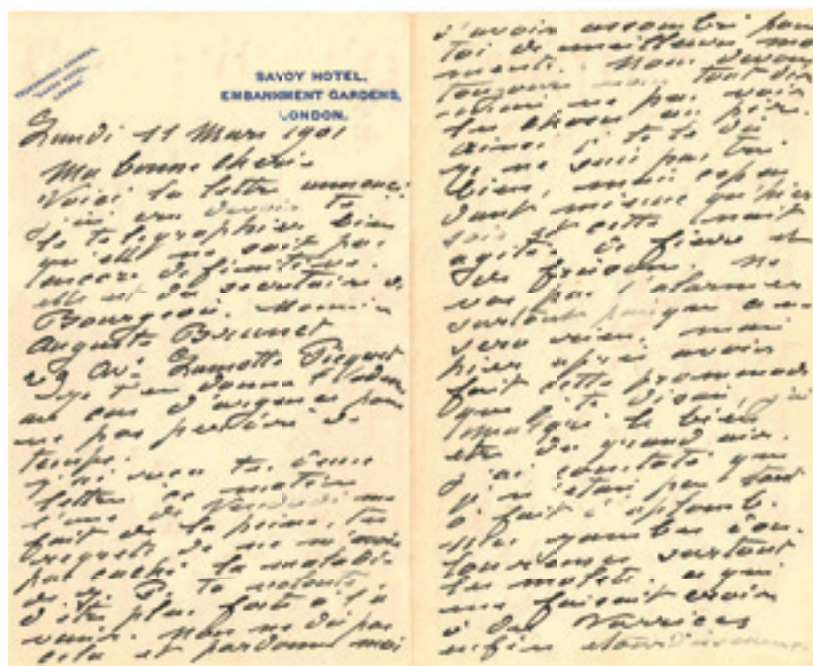 SAVOY HOTEL,
EMBANKMENT GARDENS,
LONDON.
Lundi 11 Mars 1901
Ma bonne cherie
Voici la lettre
j'ai cru devoir te
la telegraphier bien
qu'elle ne soit pas
encore definitive.
elle est du secretaire de
Bourgeois. Monsieur
Auguste Brunet
29 Av. Lamotte Picquet
Je t'en donne l'
au cas d'urgence pour
ne pas perdre de
temps.
J'ai recu ta
lettre ce matin
l'une de Vendredi me
fait de la peine, tu
regrets de ne m'avoir
pas caché la maladie
de
d'être plus forte à l'a
venir. Non ne dis pas
cela et pardonne moi
d'avoir assombri pour
toi de meilleurs mo
ments. Nous devons
toujours tout dire
ne pas voir
les choses au pire.
Ainsi je te le dis
je ne suis pas très
bien, mais cepen
dant mieux qu'hier
soir et cette nuit
agitée de fièvre et
des frissons. Ne
vas pas t'alarmer
surtout puique ce ne
sera rien. mais
hier après avoir
fait cette promenade
que je te disais, j'ai
malgré le bien
être du grand air.
j'ai constaté que
je n'étais pas tout
à fait d'aplomb.
Mes jambes
surtout
les mollets. ce qui
me faisait croire
à des Varrices
enfin